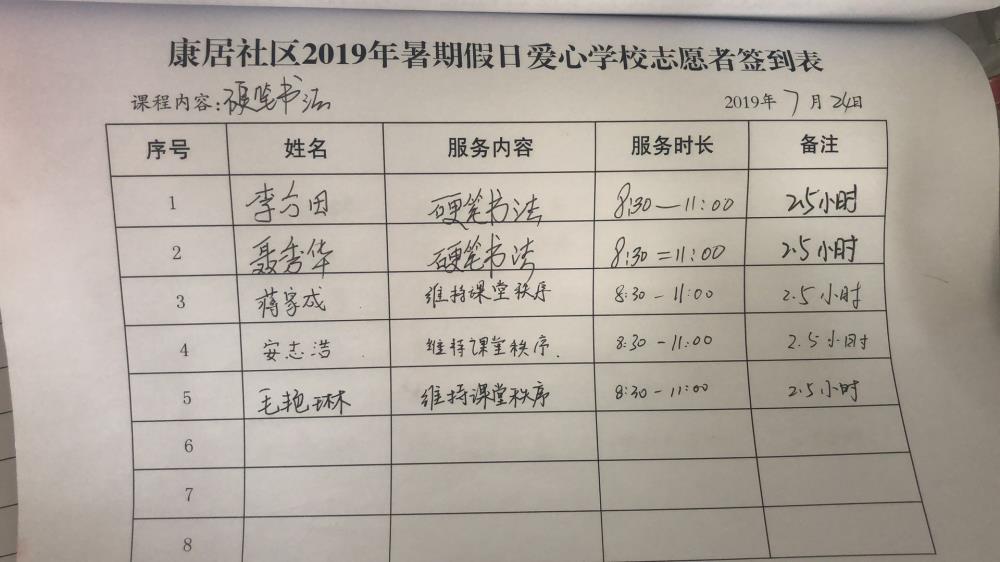 康居社区2019年暑期假日爱心学校志愿者签到表
课程内容:硬笔书法 2019年7月24日
序号 姓名 服务内容 服务时长 备注
1 李方田 硬笔书法 8:30—11:00 2.5小时
2 聂秀华 硬笔书法 8:30=11:00 2.5小时
3 蒋家成 维持课堂秩序 8:30-11:00 2.5小时
4 安志浩 维持课堂秩序. 8:30-11:00 2.5小时
5 毛艳琳 维持课堂秩序 8:30-11:00 2.5小时
6
7
8